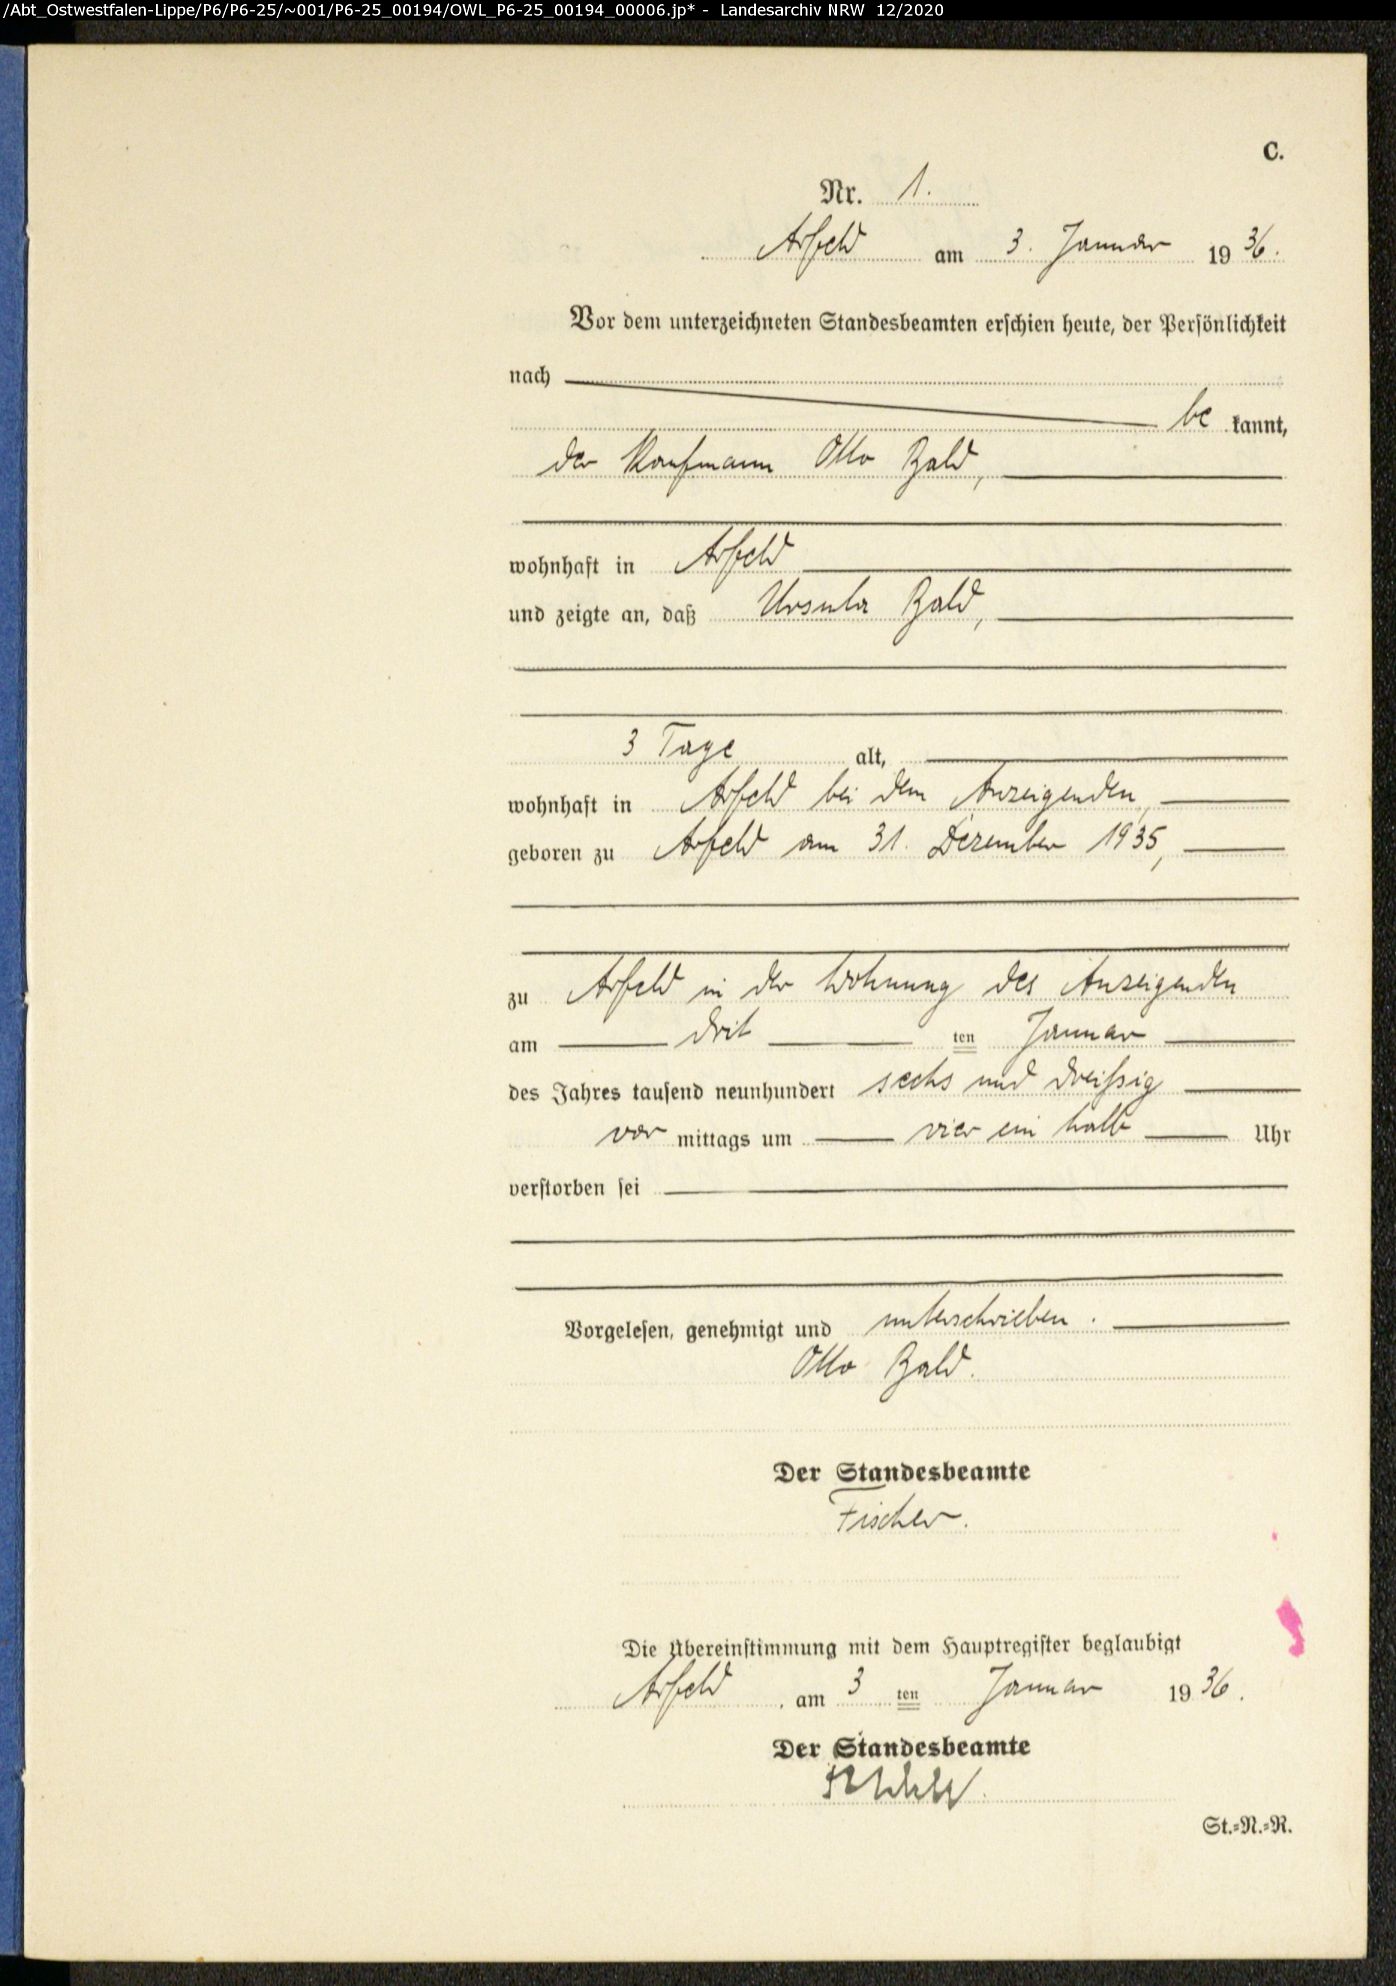 /Abt_Ostwestfalen-Lippe/P6/P6-25/~001/P6-25_00194/OWL_P6-25_00194_00006.jp* - Landesarchiv NRW 12/2020
C.
Nr. 1.
Arfeld am 3. Januar 1936.
Vor dem unterzeichneten Standesbeamten erschien heute, der Persönlichkeit
nach
be kannt,
der Kaufmann Otto Bald,
wohnhaft in Arfeld
und zeigte an, daß Ursula Bald,
3 Tage alt,
wohnhaft in Arfeld bei dem Anzeigenden,
geboren zu Arfeld am 31. Dezember 1935,
zu Arfeld in der Wohnung des Anzeigenden
am drit ten Januar
des Jahres tausend neunhundert sechs und dreißig
vor mittags um vier ein halb Uhr
verstorben sei
Vorgelesen, genehmigt und unterschrieben.
Otto Bald.
Der Standesbeamte
Fischer.
Die Übereinstimmung mit dem Hauptregister beglaubigt
Arfeld, am 3 ten Januar 1936.
Der Standesbeamte
St.=N.=R.